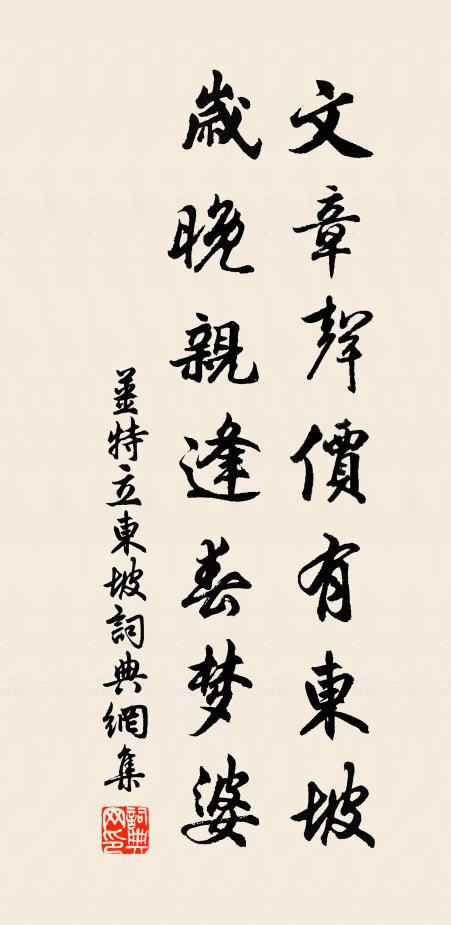 文章聲價有東坡
歲晚親逢春梦婆
姜特立東坡詞典網集
詞典網印